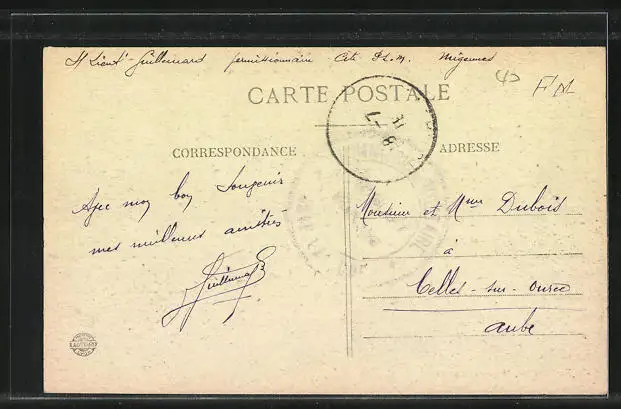 Lieut Guillemard permissionnaire Cité P.L.M. Migennes
FM
CARTE POSTALE
CORRESPONDANCE
ADRESSE
Avec mon bon Souvenir
mes meilleures amitiés
Guillemard
Monsieur et Mme Dubois
à
Celles-sur-Ource
Aube